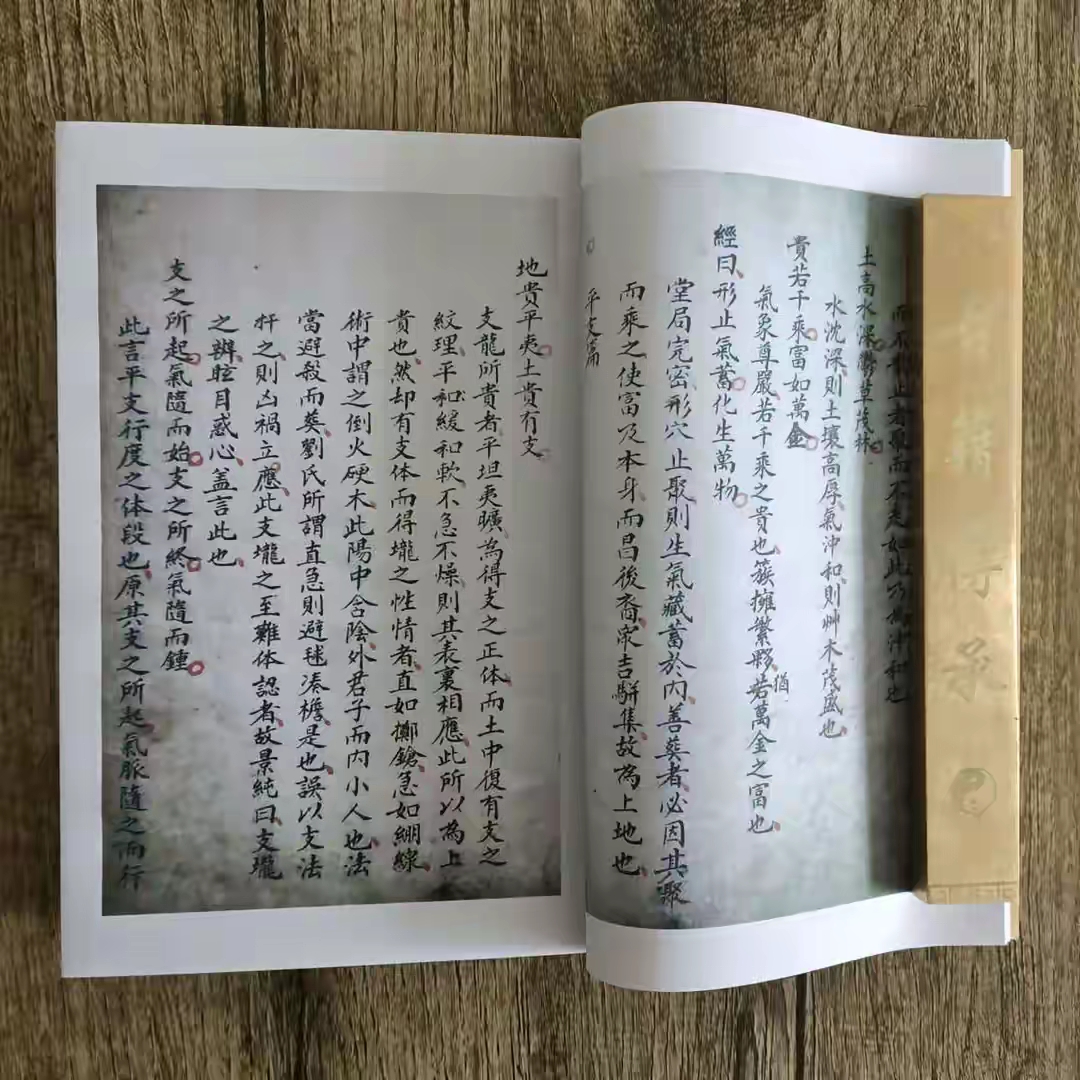 而不
止者聚而不走如此乃為沖和也
土高水深鬱草茂林
水沈深則土壤高厚氣沖和則艸木茂盛也
貴若千乘富如萬金
氣象尊嚴若千乘之貴也簇擁繁夥若萬金之富也
猶
經曰形止氣蓄化生萬物
堂局完密形穴止聚則生氣藏蓄於內善葬者必因其聚
而乘之使富及本身而昌後裔家吉駢集故為上地也
平支篇
地貴平夷土貴有支
支龍所貴者平坦夷曠為得支之正体而土中復有支之
紋理平和緩和軟不急不燥則其表裏相應此所以為上
貴也然却有支体而得壠之性情者直如擲鎗急如綳線
術中謂之倒火硬木此陽中含陰外君子而內小人也法
當避殺而葬劉氏所謂直急則避毬凑檐是也誤以支法
扦之則凶禍立應此支壠之至難体認者故景純曰支壠
之辨眩目惑心盖言此也
支之所起氣隨而始支之所終氣隨而鍾
此言平支行度之体段也原其支之所起氣脈隨之而行